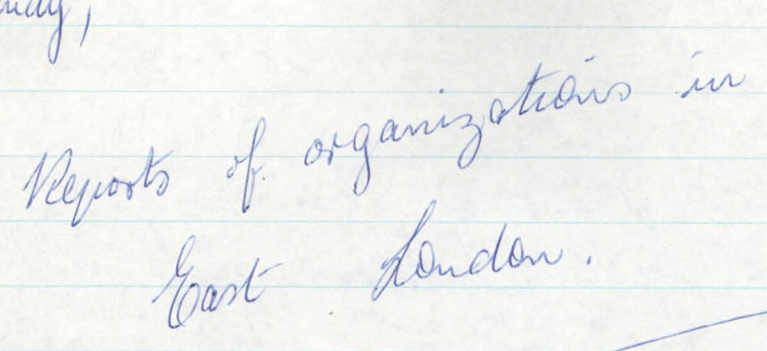 Reports of organizations in
East London.